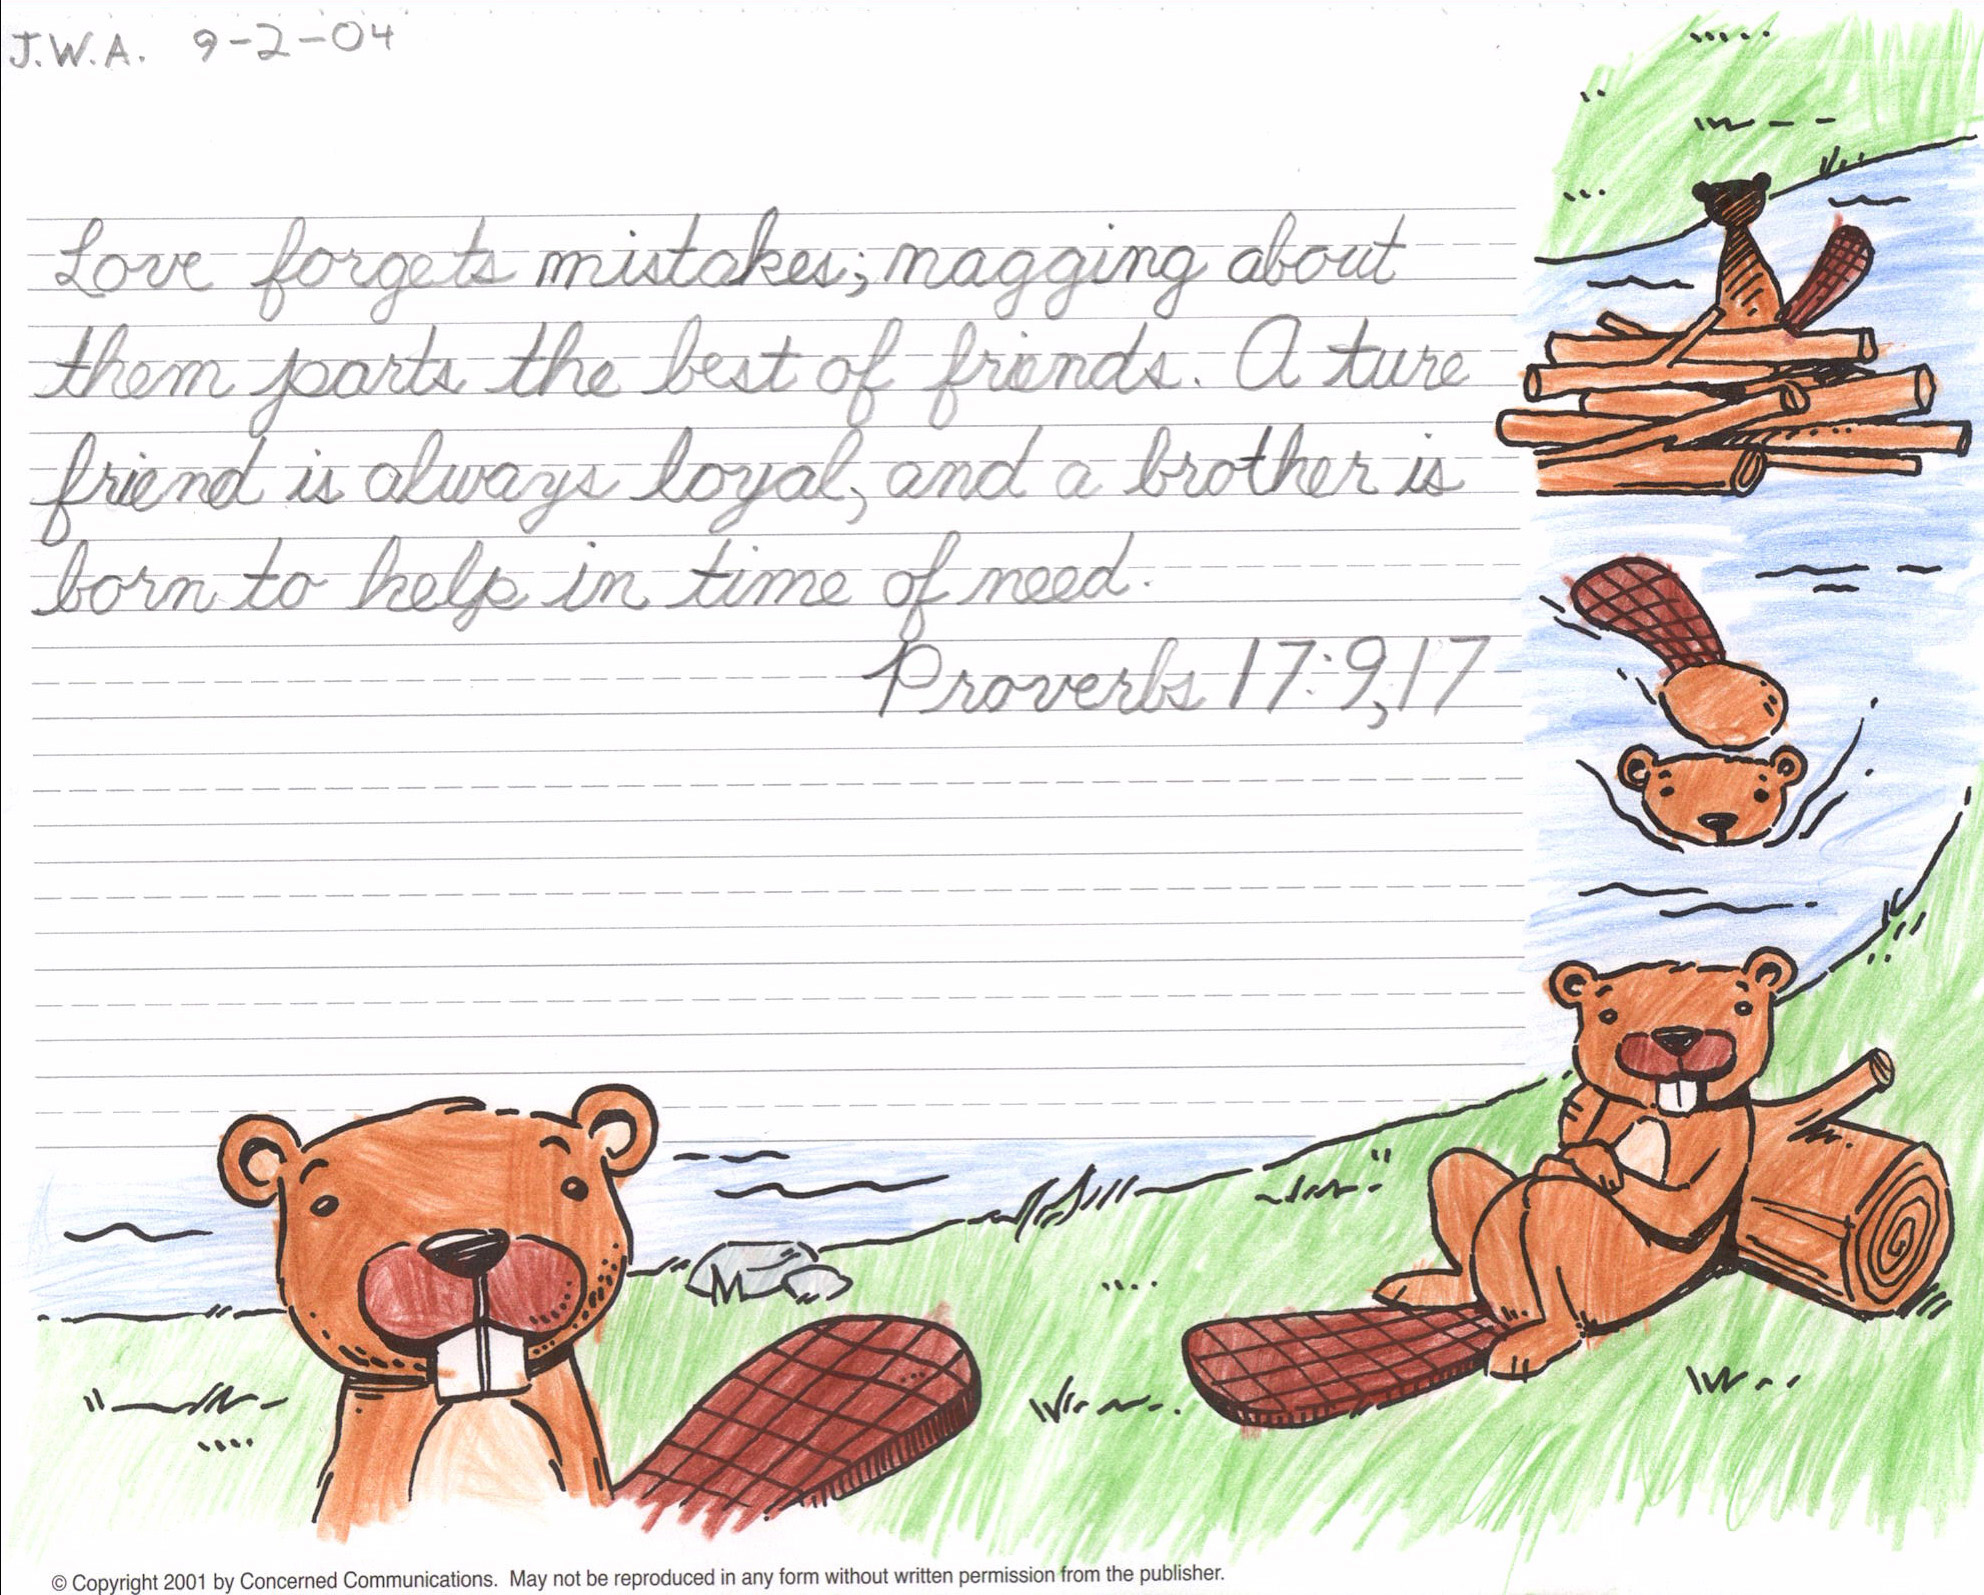 J.W.A. 9-2-04
Love forgets mistakes; nagging about
them parts the best of friends. A ture
friend is always loyal, and a brother is
born to help in time of need.
Proverbs 17:9,17
© Copyright 2001 by Concerned Communications. May not be reproduced in any form without written permission from the publisher.